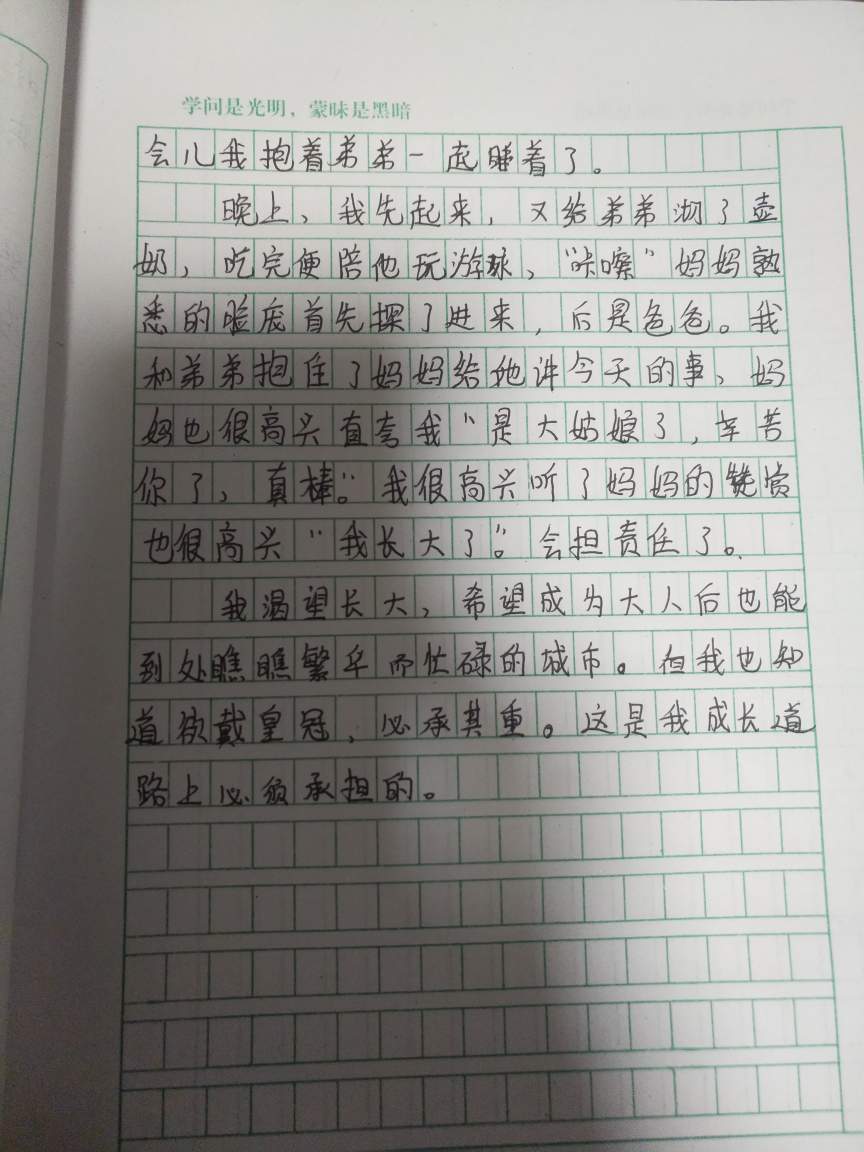 学问是光明，蒙昧是黑暗
会儿我抱着弟弟一起睡着了。
晚上、我先起来，又给弟弟沏了壶
奶，吃完便陪他玩游球、“咔嚓”妈妈熟
悉的脸庞首先探了进来，后是爸爸。我
和弟弟抱住了妈妈给她讲今天的事、妈
妈也很高兴直夸我“是大姑娘了，辛苦
你了，真棒。”我很高兴听了妈妈的赞赏
也很高兴“我长大了”。会担责任了。
我渴望长大，希望成为大人后也能
到处瞧瞧繁华而忙碌的城市。但我也知
道欲戴皇冠，必承其重。这是我成长道
路上必须承担的。